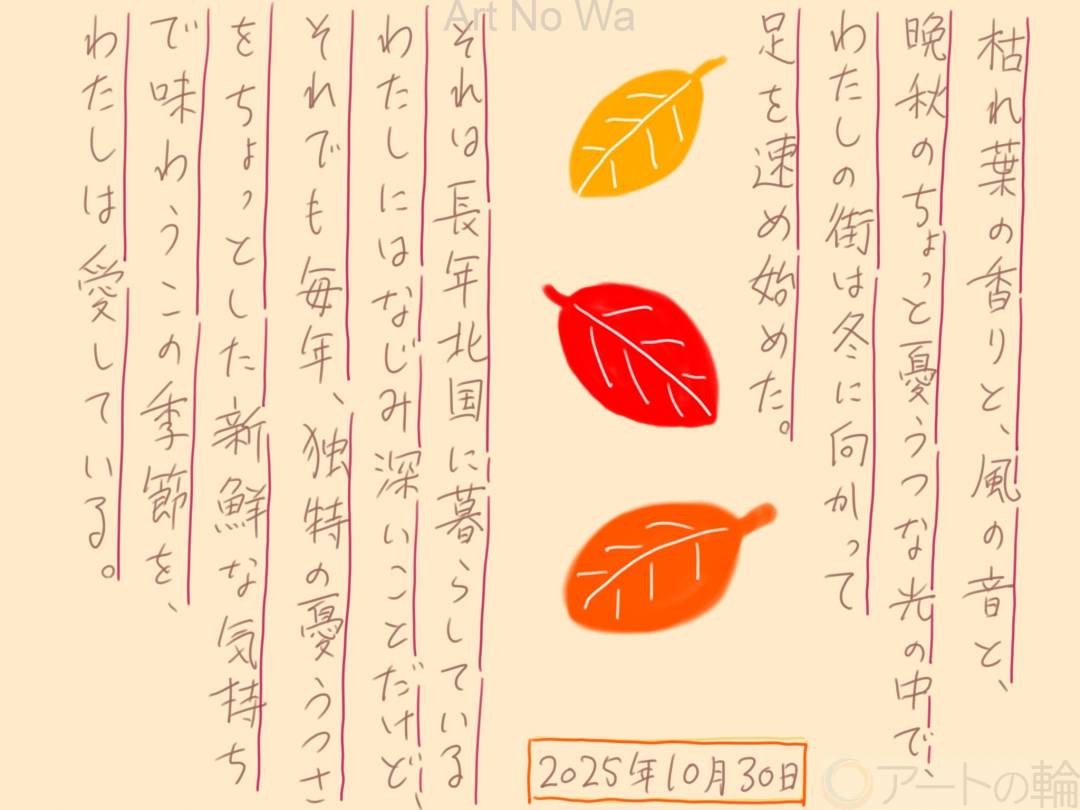 Art No Wa
枯れ葉の香りと、風の音と、
晩秋のちょっと憂うつな光の中で、
わたしの街は冬に向かって
足を速め始めた。
それは長年北国に暮らしている
わたしにはなじみ深いことだけど、
それでも毎年、独特の憂うつさ
をちょっとした新鮮な気持ち
で味わうこの季節を、
わたしは愛している。
2025年10月30日
アートの輪